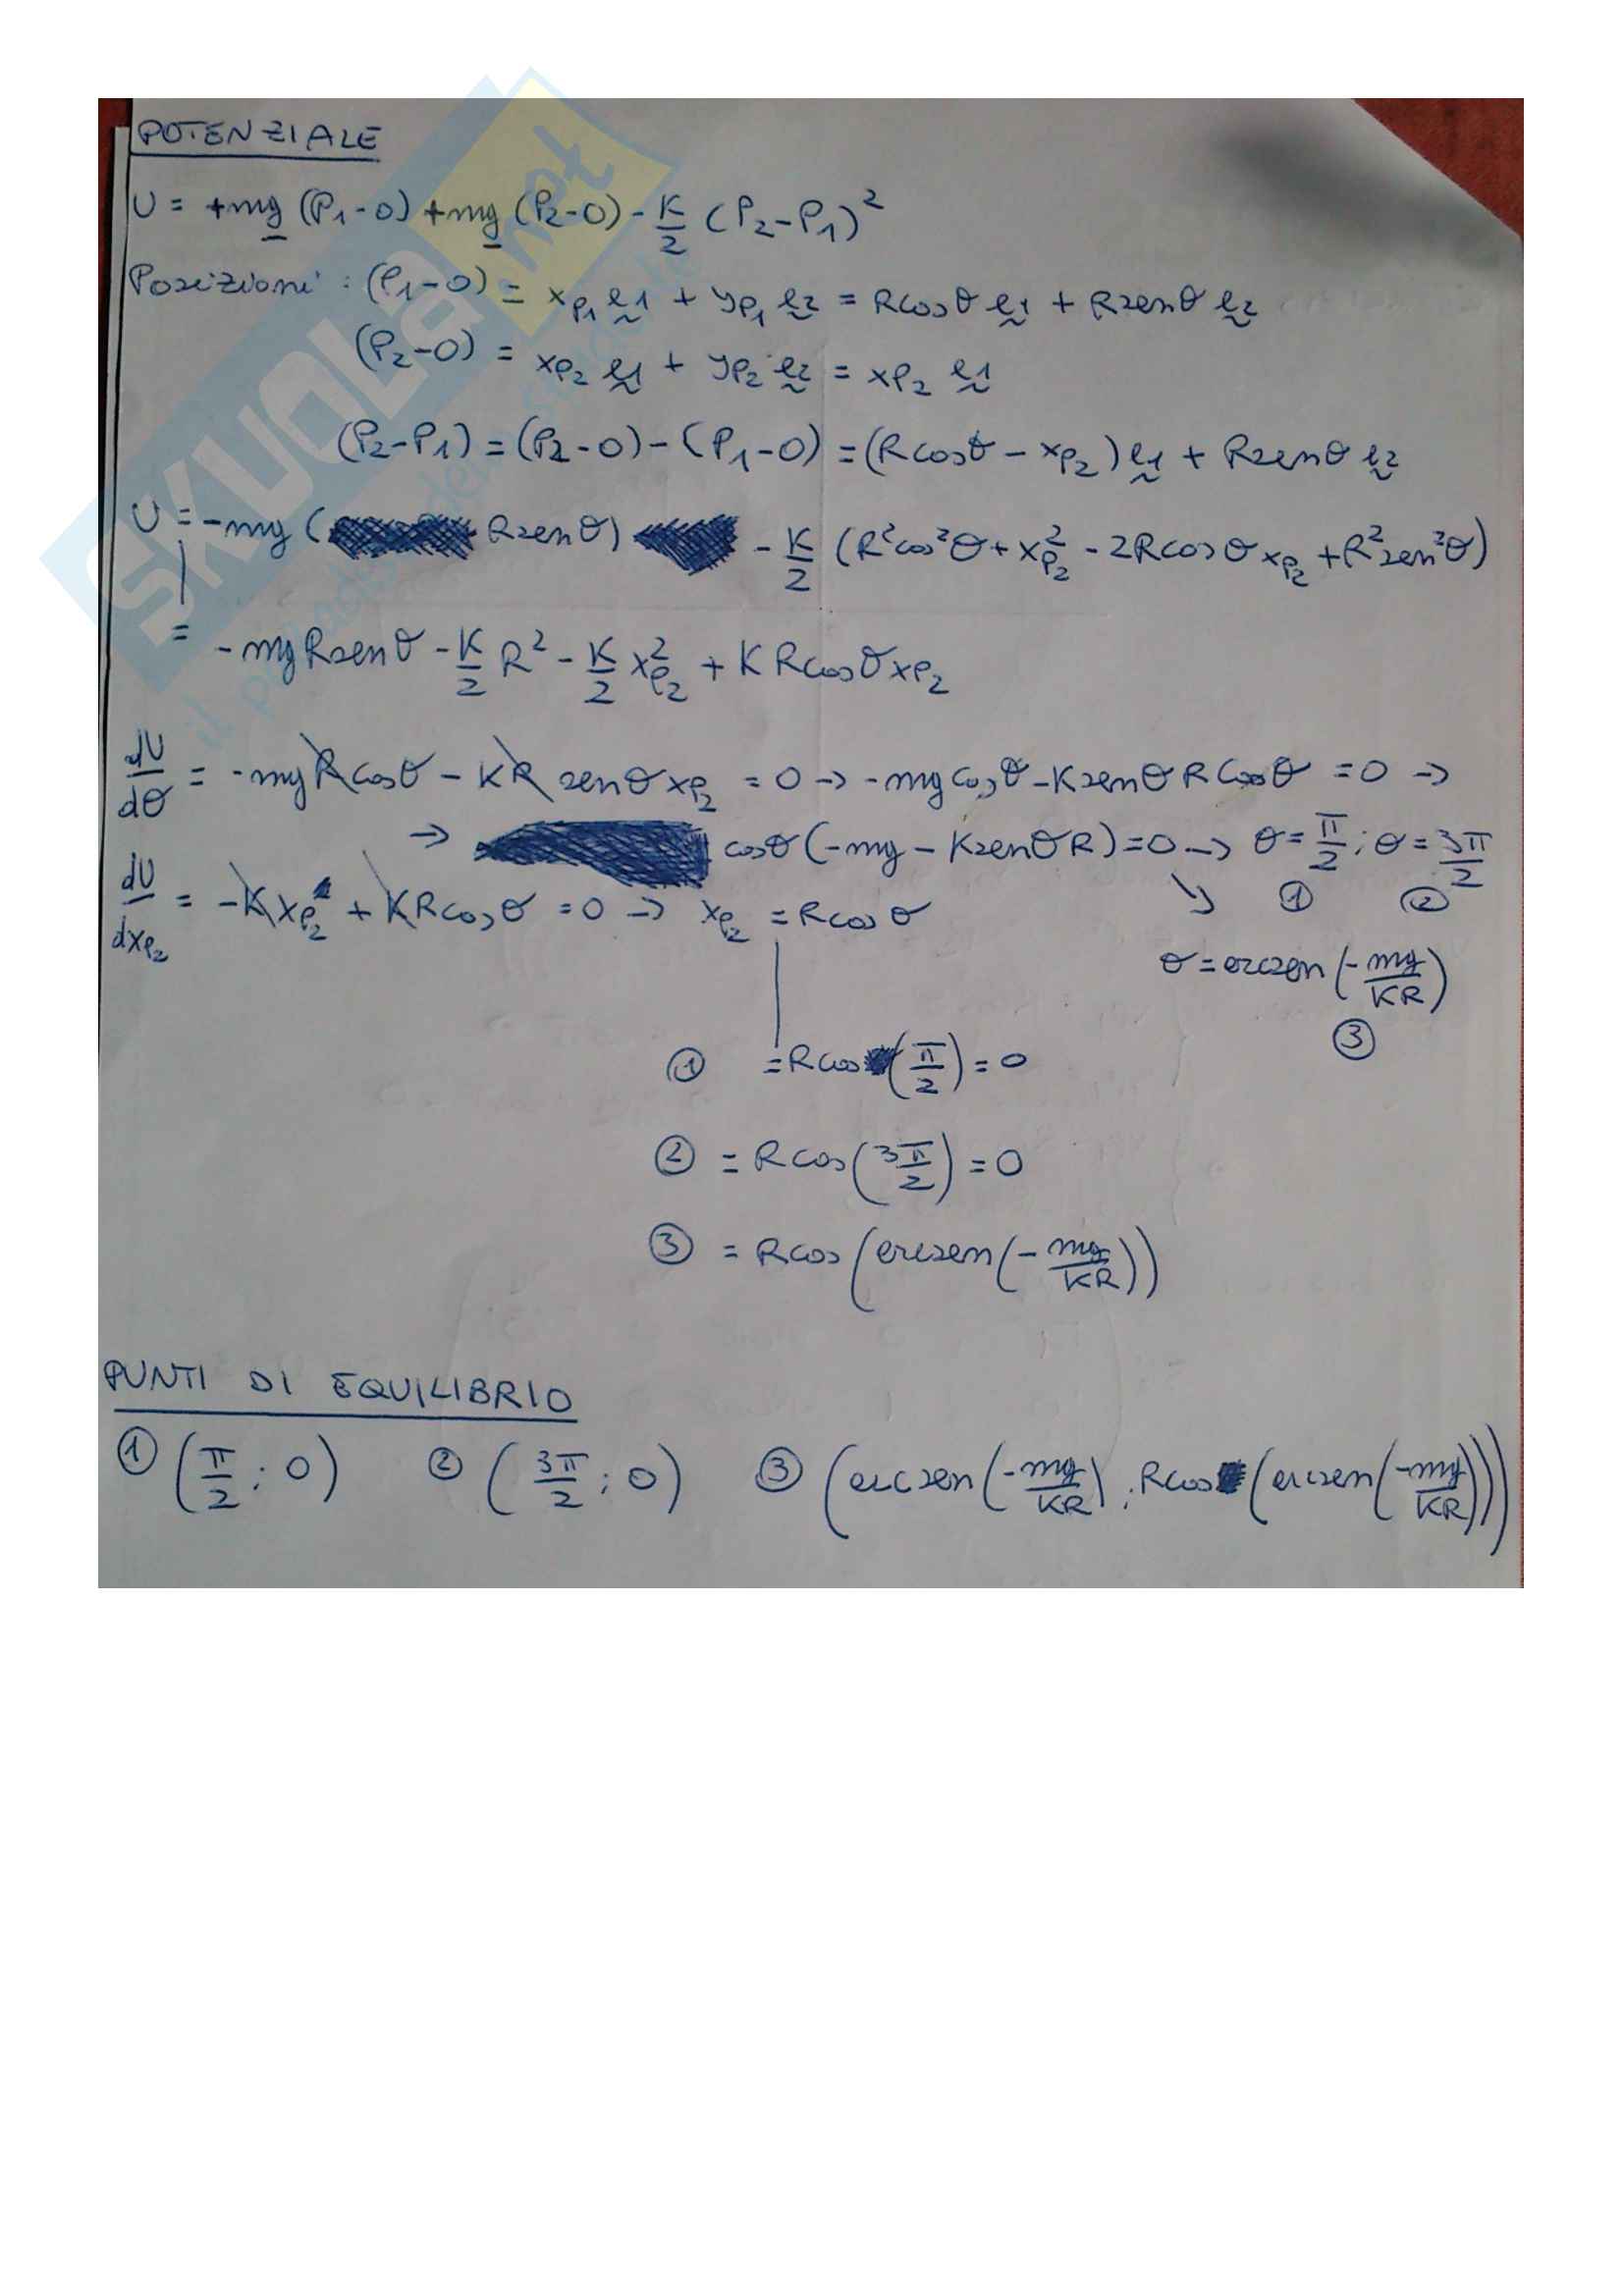 POTENZIALE
U = +mg (P1-O) +mg (P2-O) - K/2 (P2-P1)²
Posizioni : (P1-O) = xP1 e1 + yP1 e2 = Rcosθ e1 + Rsenθ e2
(P2-O) = xP2 e1 + yP2 e2 = xP2 e1
(P2-P1) = (P2-O) - (P1-O) = (Rcosθ - xP2) e1 + Rsenθ e2
U = -mg ( Rsenθ) - K/2 (R²cos²θ + xP2² - 2Rcosθ xP2 + R²sen²θ)
= -mgRsenθ - K/2 R² - K/2 xP2² + KRcosθ xP2
dU/dθ = -mgRcosθ - KR senθ xP2 = 0 → -mgcosθ - KsenθRcosθ = 0 →
→ cosθ(-mg - KsenθR) = 0 → θ = π/2 ; θ = 3π/2
① ②
dU/dxP2 = -KxP2 + KRcosθ = 0 → xP2 = Rcosθ
θ = arcsen(-mg/KR)
③
① = Rcos(π/2) = 0
② = Rcos(3π/2) = 0
③ = Rcos(arcsen(-mg/KR))
PUNTI DI EQUILIBRIO
① (π/2 ; 0) ② (3π/2 ; 0) ③ (arcsen(-mg/KR) ; Rcos(arcsen(-mg/KR)))
SKUOLA.net